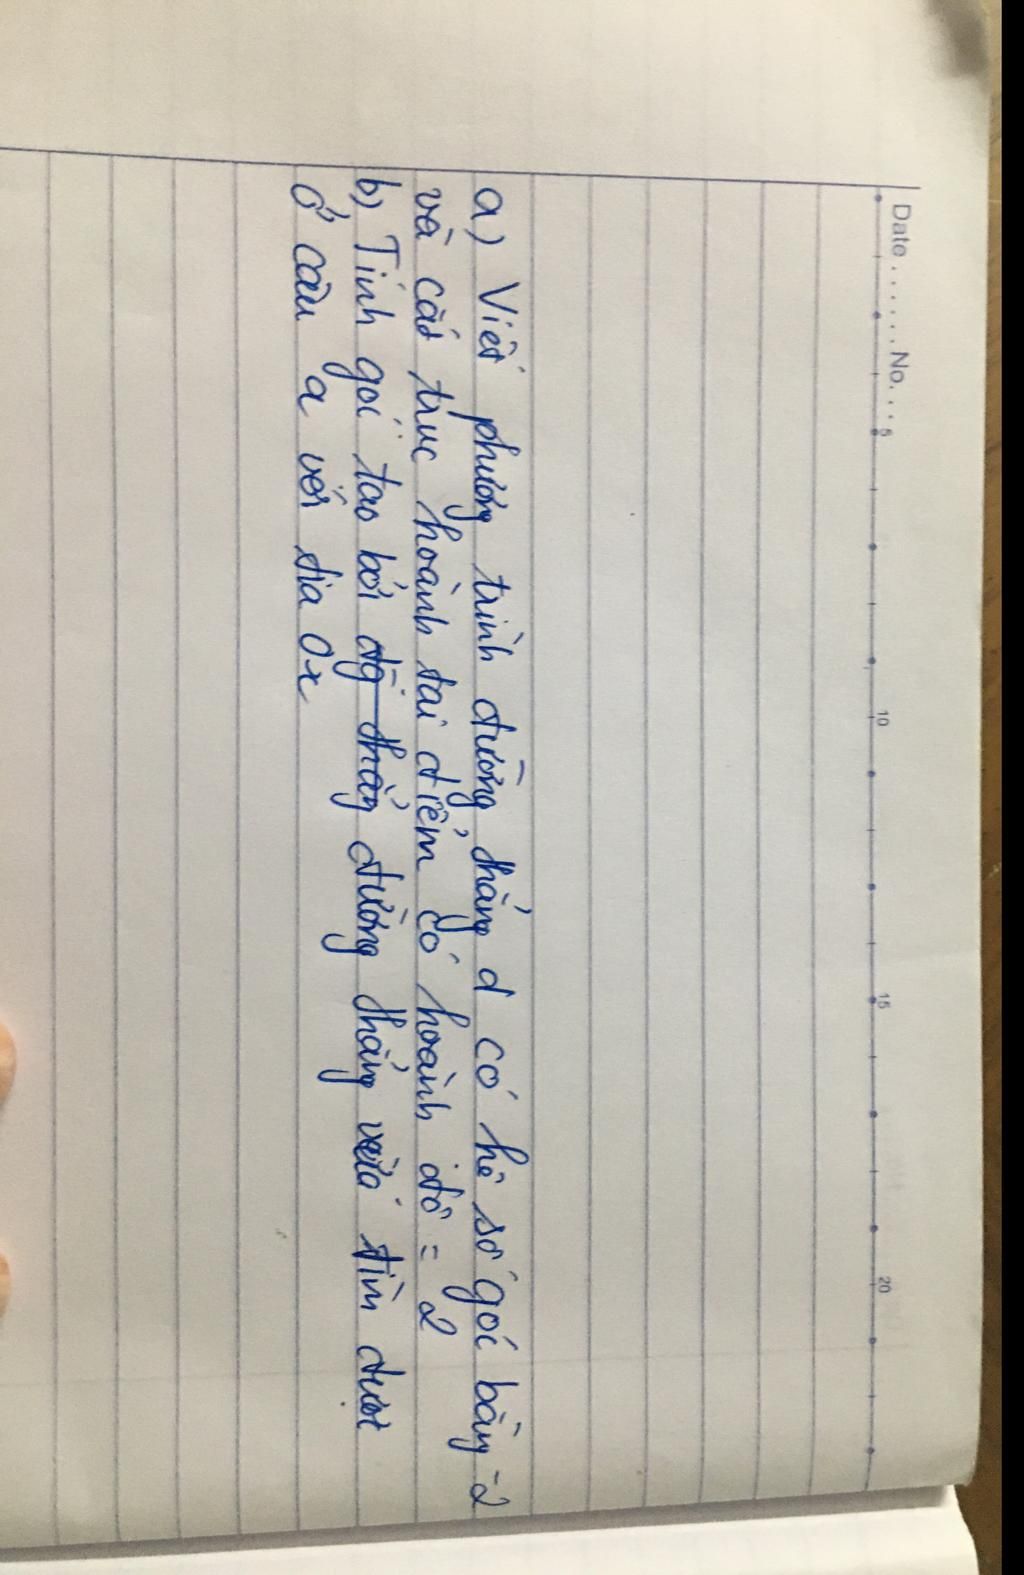 Date.......No....
5 10 15 20
a) Viết phương trình đường thẳng d có hệ số góc bằng -2
và cắt trục hoành tại điểm có hoành độ = 2
b) Tính góc tạo bởi đg thẳng đường thẳng vừa tìm được
ở câu a với tia Ox